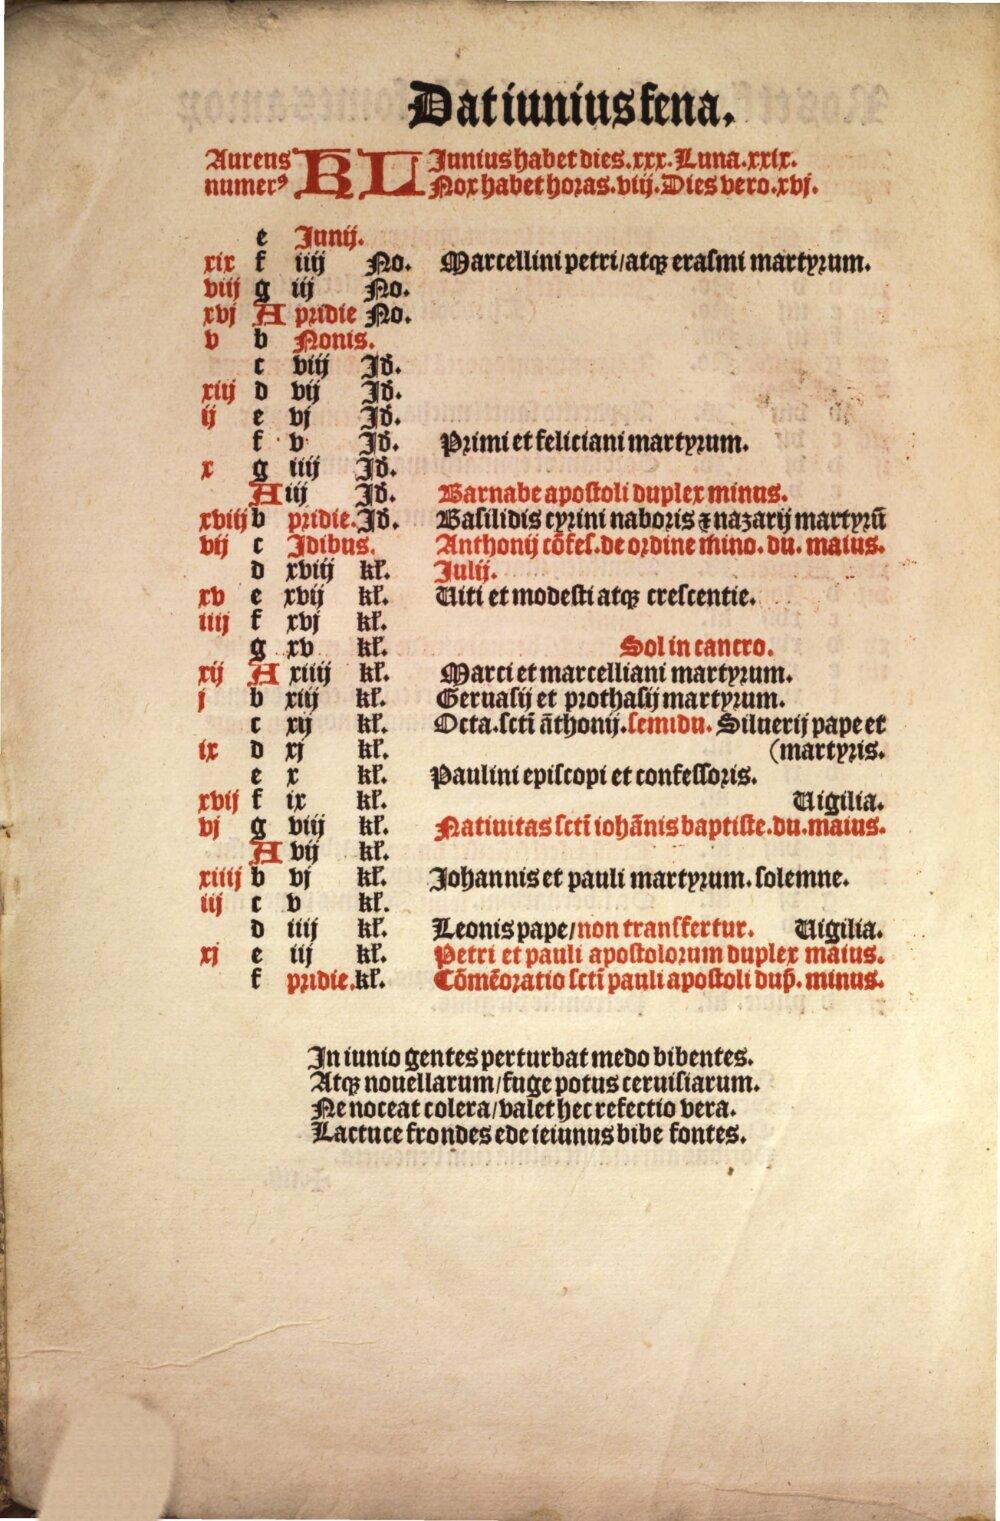 Dat iunius fena.
Aureus KL Junius habet dies.xxx.Luna.xxix.
numerꝰ Nox habet horas.viij.Dies vero.xvj.
e Junij.
xix f iiij No. Marcellini petri/atqꝫ erasmi martyrum.
viij g iij No.
xvj A pridie No.
v b Nonis.
c viij Jd.
xiij d vij Jd.
ij e vj Jd.
f v Jd. Primi et feliciani martyrum.
x g iiij Jd.
A iij Jd. Barnabe apostoli duplex minus.
xviij b pridie. Jd. Basilidis cyrini naboris ⁊ nazarij martyrū
vij c Jdibus. Anthonij cōfes.de ordine mino. du. maius.
d xviij kl. Julij.
xv e xvij kl. Uiti et modesti atqꝫ crescentie.
iiij f xvj kl.
g xv kl. Sol in cancro.
xij A xiiij kl. Marci et marcelliani martyrum.
j b xiij kl. Geruasij et prothasij martyrum.
c xij kl. Octa.sctī āthonij.semidu. Siluerij pape et
ix d xj kl. (martyris.
e x kl. Paulini episcopi et confessoris.
xvij f ix kl. Uigilia.
vj g viij kl. Natiuitas sctī iohānis baptiste.du.maius.
A vij kl.
xiiij b vj kl. Johannis et pauli martyrum. solemne.
iij c v kl.
d iiij kl. Leonis pape/non transfertur. Uigilia.
xj e iij kl. Petri et pauli apostolorum duplex maius.
f pridie.kl. Cōmēoratio sctī pauli apostoli dup̄. minus.
In iunio gentes perturbat medo bibentes.
Atqꝫ nouellarum/fuge potus ceruisiarum.
Ne noceat colera/valet hec refectio vera.
Lactuce frondes ede ieiunus bibe fontes.